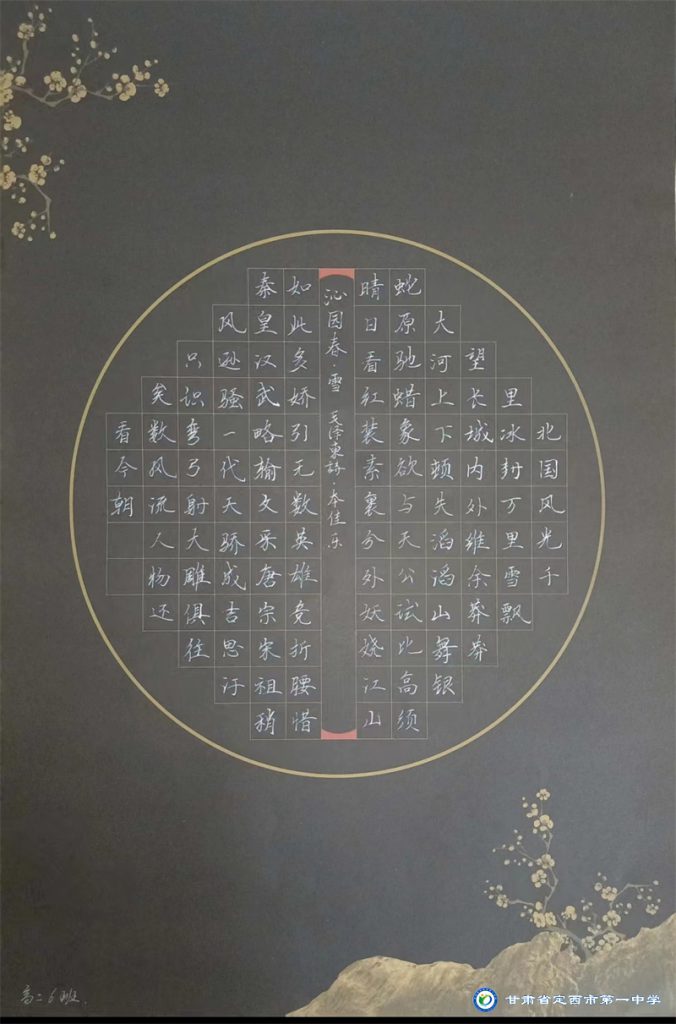 北国风光千
里冰封万里雪飘
望长城内外维余莽莽
大河上下顿失滔滔山舞银
蛇原驰蜡象欲与天公试比高须
晴日看红装素裹分外妖娆江山
沁园春·雪 毛泽東 佳乐
如此多娇引无数英雄竞折腰惜
秦皇汉武略输文采唐宗宋祖稍
风逊骚一代天骄成吉思汗
只识弯弓射大雕俱往
矣数风流人物还
看今朝
高二6班.
甘肃省定西市第一中学